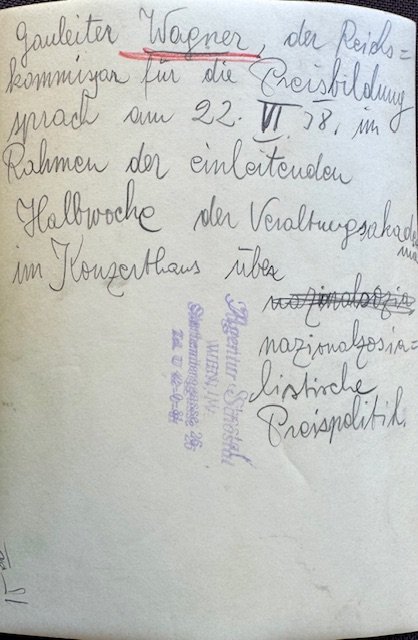 Gauleiter Wagner, der Reichs=
kommissar für die Preisbildung
sprach am 22. VI. 38. im
Rahmen der einleitenden
Halbwoche der Veraltungsakade
mie
im Konzerthaus über
nazionalsozia=
listische
Preispolitik.
Agentur Schostal
WIEN, IV.